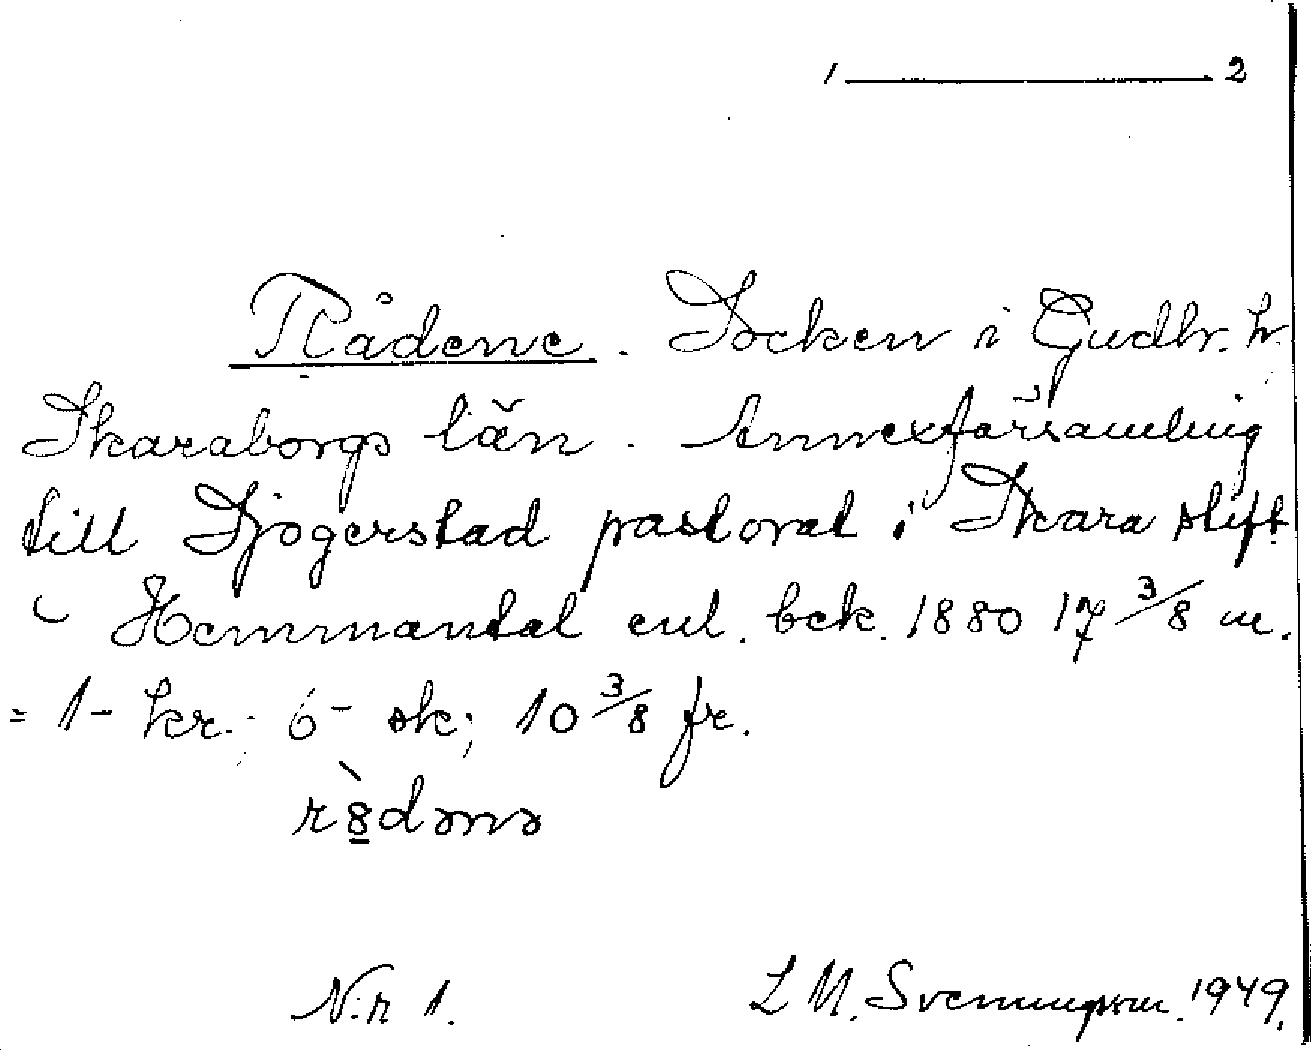 1 ———— 2
Rådene. Socken i Gudhr. hr.
Skaraborgs län. Annexförsamling
till Sjögerstad pastorat i Skara stift.
Hemmantal enl. bek. 1880 17 3/8 m.
= 1- kr.; 6- sk; 10 3/8 fr.
r8̲̀dənə
N:r 1. L M. Svenungsson. 1949.